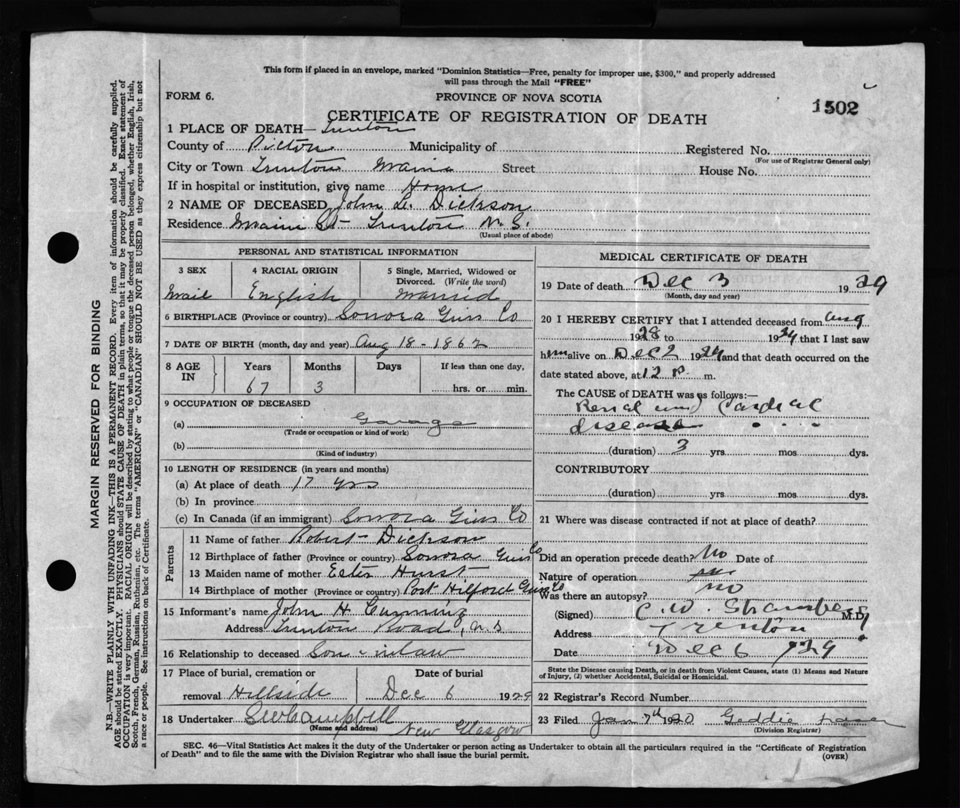 This form if placed in an envelope, marked "Dominion Statistics—Free, penalty for improper use, $300," and properly addressed
will pass through the Mail "FREE"
FORM 6.
PROVINCE OF NOVA SCOTIA
1502
CERTIFICATE OF REGISTRATION OF DEATH
1 PLACE OF DEATH— Trenton
County of Pictou Municipality of Registered No.
(For use of Registrar General only)
City or Town Trenton Main Street House No.
If in hospital or institution, give name Home
2 NAME OF DECEASED John L. Dickson
Residence Main St Trenton N.S.
(Usual place of abode)
PERSONAL AND STATISTICAL INFORMATION
3 SEX 4 RACIAL ORIGIN 5 Single, Married, Widowed or Divorced. (Write the word)
Mail English Married
6 BIRTHPLACE (Province or country) Sonora Guys Co
7 DATE OF BIRTH (month, day and year) Aug 18 - 1862
8 AGE IN Years Months Days If less than one day,
67 3 hrs. or min.
9 OCCUPATION OF DECEASED
(a) Garage
(Trade or occupation or kind of work)
(b)
(Kind of industry)
10 LENGTH OF RESIDENCE (in years and months)
(a) At place of death 17 yrs
(b) In province
(c) In Canada (if an immigrant) Sonora Guys Co
Parents
11 Name of father Robert Dickson
12 Birthplace of father (Province or country) Sonora Guys Co
13 Maiden name of mother Ester Hurst
14 Birthplace of mother (Province or country) Port Hilford Guys Co
15 Informant's name John H Cumming
Address Trenton Road, N.S
16 Relationship to deceased Son inlaw
17 Place of burial, cremation or removal Hillside
Date of burial Dec 6 1929
18 Undertaker Campbell
(Name and address) New Glasgow
MEDICAL CERTIFICATE OF DEATH
19 Date of death Dec 3 1929
(Month, day and year)
20 I HEREBY CERTIFY that I attended deceased from Aug
1928 to 1929 that I last saw
him alive on Dec 2 1929 and that death occurred on
date stated above, at 12 p. m.
The CAUSE of DEATH was as follows:—
Renal and Cardial
disease
(duration) 3 yrs. mos. dys.
CONTRIBUTORY
(duration) yrs. mos. dys.
21 Where was disease contracted if not at place of death?
Did an operation precede death? No Date of
Nature of operation
Was there an autopsy? No
(Signed) C. W. M.D.
Address Trenton
Date Dec 6 1929
State the Disease Causing Death, or in death from Violent Causes, state (1) Means and Nature
of Injury, (2) whether Accidental, Suicidal or Homicidal.
22 Registrar's Record Number
23 Filed Jan 7th 1930 Geddie Fraser
(Division Registrar)
SEC. 46—Vital Statistics Act makes it the duty of the Undertaker or person acting as Undertaker to obtain all the particulars required in the "Certificate of Registration
of Death" and to file the same with the Division Registrar who shall issue the burial permit.
(OVER)
MARGIN RESERVED FOR BINDING
N.B.—WRITE PLAINLY WITH UNFADING INK—THIS IS A PERMANENT RECORD. Every item of information should be carefully supplied.
AGE should be stated EXACTLY. PHYSICIANS should STATE CAUSE OF DEATH in plain terms, so that it may be properly classified. Exact statement of
OCCUPATION is very important. RACIAL ORIGIN will be described by stating to what people or tongue the deceased person belonged, whether English, Irish,
Scotch, French, German, Russian, Ruthenian, etc. The terms "AMERICAN" or "CANADIAN" SHOULD NOT BE USED as they express citizenship but not
a race or people. See instructions on back of Certificate.